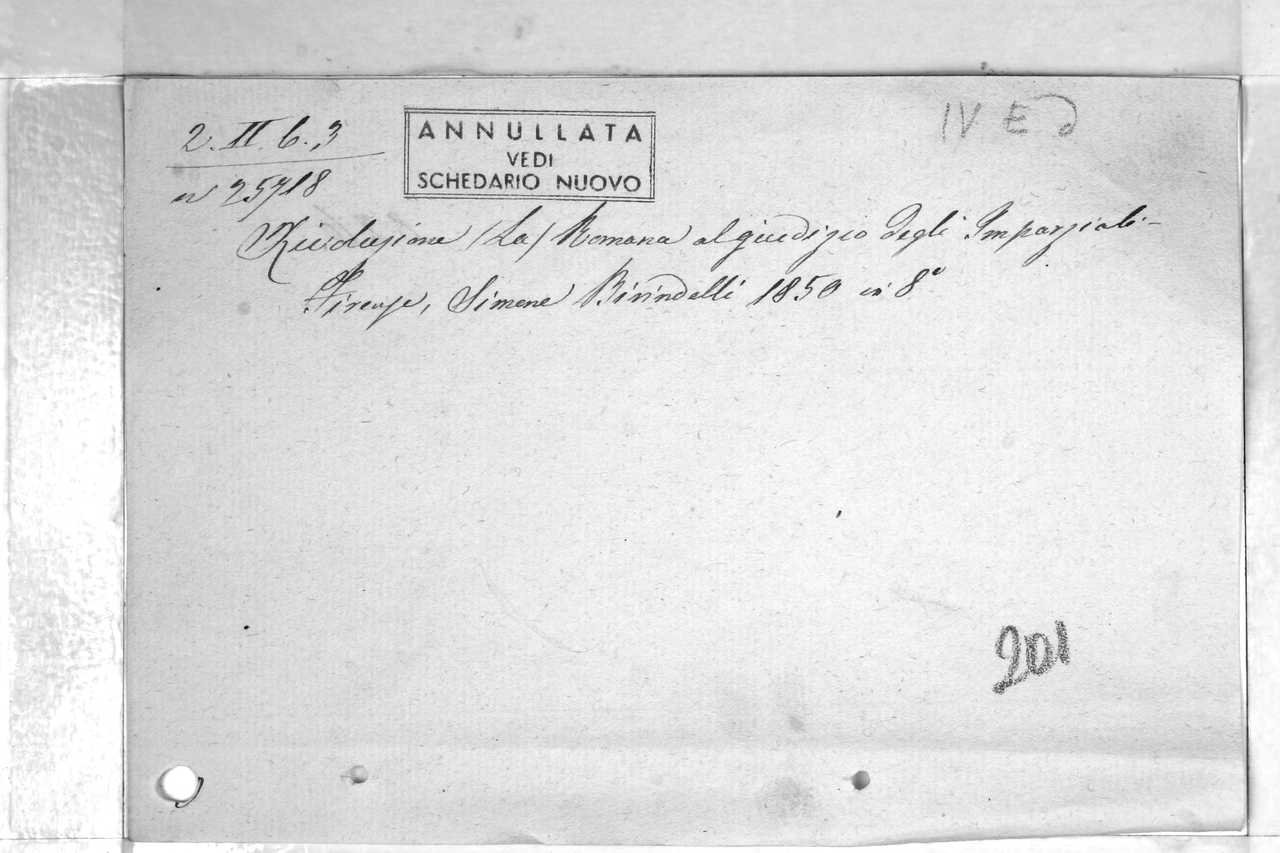 2. II. 6. 3
ANNULLATA
VEDI
SCHEDARIO NUOVO
IV E
n 25718
Rivoluzione (La) Romana al giudizio degli Imparziali-
Firenze, Simone Birindelli 1850 in 8°
201